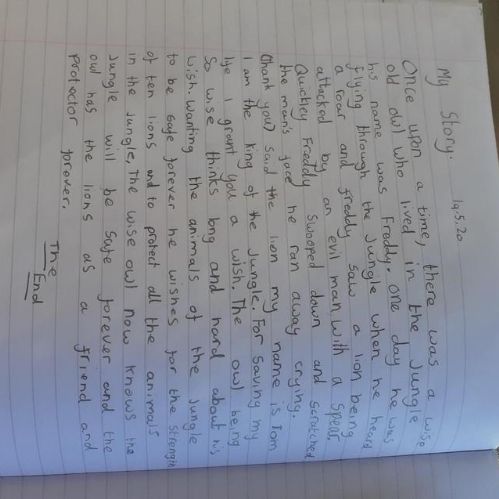 My Story 19.5.20
Once upon a time, there was a wise
old owl who lived in the Jungle
his name was Freddy. One day he was
flying through the Jungle when he heard
a roar and freddy saw a lion being
attacked by an evil man with a spear.
Quickley Freddy swooped down and scratched
the man's face he ran away crying.
Thank you, said the lion my name is Tom
I am the king of the Jungle. For saving my
lye I grant you a wish. The owl being
So wise thinks long and hard about his
wish. Wanting the animals of the Jungle
to be safe forever he wishes for the strength
of ten lions and to protect all the animals
in the Jungle, The wise owl now knows the
Jungle will be safe forever and the
owl has the lions as a friend and
protector forever.
The
End